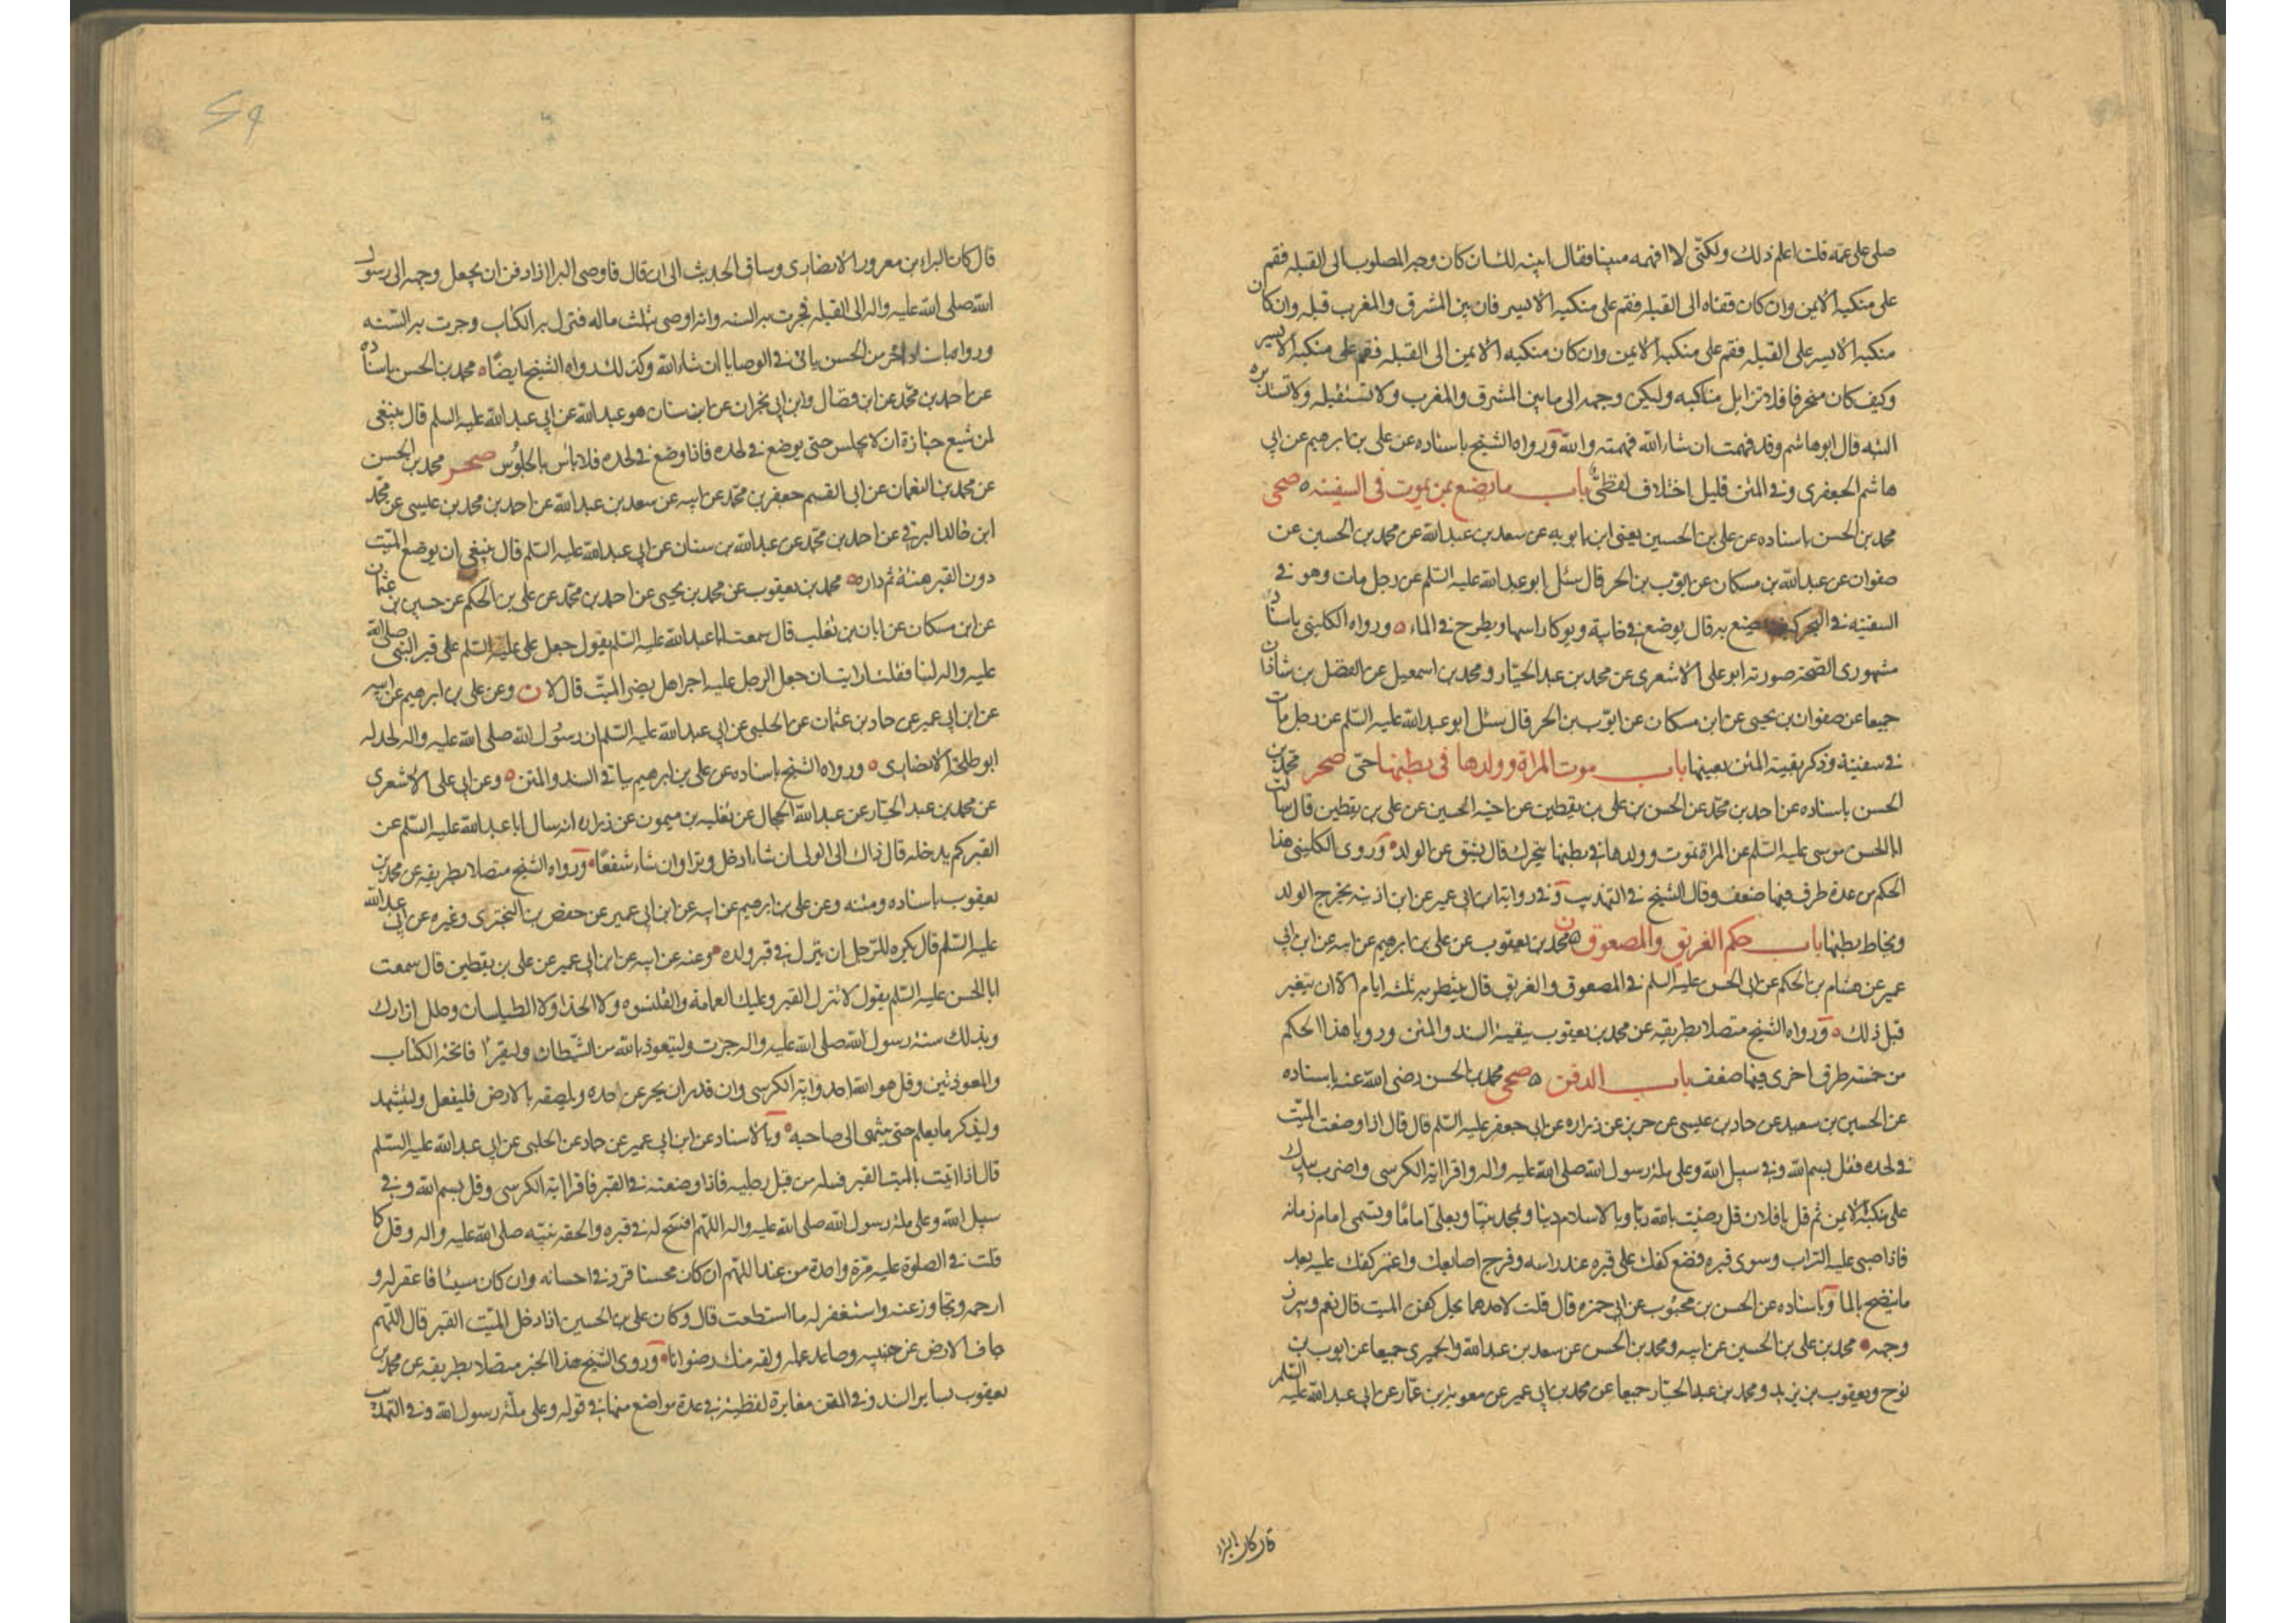 صلى على عمه قلت اعلم ذلك ولكنى لا افهمه مبينا فقال ابينه لك ان كان وجه المصلوب الى القبله فقم
على منكبه الايمن وان كان قفاه الى القبله فقم على منكبه الايسر فان بين المشرق والمغرب قبله وان كان
منكبه الايسر على القبله فقم على منكبه الايمن وان كان منكبه الايمن الى القبله فقم على منكبه الايسر
وكيف كان منحرفا فلا تزايل مناكبه وليكن وجهه الى ما بين المشرق والمغرب ولا تستقبله ولا تستدبره
البته قال ابو هاشم وقد فهمت ان شاء الله فهمته والله ورواه الشيخ باسناده عن على بن ابرهيم عن ابى
هاشم الجعفرى وفى المتن قليل اختلاف لفظى باب ما يصنع بمن يموت فى السفينه ٥ صحى
محمد بن الحسن باسناده عن على بن الحسين يعنى ابن بابويه عن سعد بن عبدالله عن محمد بن الحسين عن
صفوان عن عبدالله بن مسكان عن ايوب بن الحر قال سئل ابو عبدالله عليه السلم عن رجل مات وهو فى
السفينه فى البحر كيف يصنع به قال يوضع فى خابية ويوكا راسها ويطرح فى الماء ٥ ورواه الكلينى باسناد
مشهورى الصحة صورته ابو على الاشعرى عن محمد بن عبد الجبار ومحمد بن اسمعيل عن الفضل بن شاذان
جميعا عن صفوان بن يحيى عن ابن مسكان عن ايوب بن الحر قال سئل ابو عبدالله عليه السلم عن رجل مات
فى سفينة وذكر بقية المتن بعينها باب موت المراة وولدها فى بطنها حى صحر محمد بن
الحسن باسناده عن احمد بن محمد عن الحسن بن على بن يقطين عن اخيه الحسين عن على بن يقطين قال سالت
ابا الحسن موسى عليه السلم عن المراة تموت وولدها فى بطنها يتحرك قال يشق عن الولد وروى الكلينى هذا
الحكم من عدة طرق فيها ضعف وقال الشيخ فى التهذيب وفى رواية ابن ابى عمير عن ابن اذينه يخرج الولد
ويخاط بطنها باب حكم الغريق والمصعوق ن محمد بن يعقوب عن على بن ابرهيم عن ابيه عن ابن ابى
عمير عن هشام بن الحكم عن ابى الحسن عليه السلم فى المصعوق والغريق قال ينتظر به ثلثه ايام الا ان يتغير
قبل ذلك ٥ ورواه الشيخ متصلا بطريقه عن محمد بن يعقوب ببقية السند والمتن ورويا هذا الحكم
من خمسة طرق اخرى فيها ضعف باب الدفن ٥ صحى محمد بن الحسن رضى الله عنه باسناده
عن الحسين بن سعيد عن حماد بن عيسى عن حريز عن زراره عن ابى جعفر عليه السلم قال قال اذا وضعت الميت
فى لحده فقل بسم الله وفى سبيل الله وعلى ملة رسول الله صلى الله عليه واله واقرا اية الكرسى واضرب بيدك
على منكبه الايمن ثم قل يا فلان قل رضيت بالله ربا وبالاسلام دينا وبمحمد نبيا وبعلى اماما ويسمى امام زمانه
فاذا حثى عليه التراب وسوى قبره فضع كفك على قبره عند راسه وفرج اصابعك واغمز كفك عليه بعد
ما ينضح بالماء وباسناده عن الحسن بن محبوب عن ابى حمزه قال قلت لاحدهما يحل كفن الميت قال نعم ويبرز
وجهه محمد بن على بن الحسين عن ابيه ومحمد بن الحسن عن سعد بن عبدالله والحميرى جميعا عن ايوب بن
نوح ويعقوب بن يزيد ومحمد بن عبد الجبار جميعا عن محمد بن ابى عمير عن معوية بن عمار عن ابى عبدالله عليه السلم
قال كان البراء
قال كان البراء بن معرور الانصارى وساق الحديث الى ان قال فاوصى البرا اذا دفن ان يجعل وجهه الى رسول
الله صلى الله عليه واله الى القبله فجرت به السنه وانه اوصى بثلث ماله فنزل به الكتاب وجرت به السنه
ورواه باسناد اخر من الحسن ياتى فى الوصايا ان شاء الله وكذلك رواه الشيخ ايضا محمد بن الحسن باسناده
عن احمد بن محمد عن ابن فضال وابن ابى نجران عن ابن سنان هو عبدالله عن ابى عبدالله عليه السلم قال ينبغى
لمن شيع جنازة ان لا يجلس حتى يوضع فى لحده فاذا وضع فى لحده فلا باس بالجلوس صحر محمد بن الحسن
عن محمد بن النعمان عن ابى القسم جعفر بن محمد عن ابيه عن سعد بن عبدالله عن احمد بن محمد بن عيسى عن محمد
ابن خالد البرقى عن احمد بن محمد عن عبدالله بن سنان عن ابى عبدالله عليه السلم قال ينبغى ان يوضع الميت
دون القبر هنئة ثم واره محمد بن يعقوب عن محمد بن يحيى عن احمد بن محمد عن على بن الحكم عن حسين بن عثمان
عن ابن مسكان عن ابان بن تغلب قال سمعت ابا عبدالله عليه السلم يقول جعل على عليه السلم على قبر النبى صلى الله
عليه واله لبنا فقلت ارايت ان جعل الرجل عليه اجرا هل يضر الميت قال لا ن وعن على بن ابرهيم عن ابيه
عن ابن ابى عمير عن حماد بن عثمان عن الحلبى عن ابى عبدالله عليه السلم ان رسول الله صلى الله عليه واله لحد له
ابو طلحة الانصارى ٥ ورواه الشيخ باسناده عن على بن ابرهيم بباقى السند والمتن ٥ وعن ابى على الاشعرى
عن محمد بن عبد الجبار عن عبدالله الحجال عن ثعلبه بن ميمون عن زراره انه سال ابا عبدالله عليه السلم عن
القبر كم يدخله قال ذاك الى الولى ان شاء ادخل وترا وان شاء شفعا ورواه الشيخ متصلا بطريقه عن محمد بن
يعقوب باسناده ومتنه وعن على بن ابرهيم عن ابيه عن ابن ابى عمير عن حفص بن البخترى وغيره عن ابى عبدالله
عليه السلم قال يكره للرجل ان ينزل فى قبر ولده وعنه عن ابيه عن ابن ابى عمير عن على بن يقطين قال سمعت
ابا الحسن عليه السلم يقول لا تنزل القبر وعليك العمامة والقلنسوه ولا الحذا ولا الطيلسان وحلل ازارك
وبذلك سنة رسول الله صلى الله عليه واله جرت وليتعوذ بالله من الشيطان وليقرا فاتحة الكتاب
والمعوذتين وقل هو الله احد واية الكرسى وان قدر ان يحسر عن خده ويلصقه بالارض فليفعل وليتشهد
وليذكر ما يعلم حتى ينتهى الى صاحبه وبالاسناد عن ابن ابى عمير عن حماد عن الحلبى عن ابى عبدالله عليه السلم
قال اذا اتيت بالميت القبر فسله من قبل رجليه فاذا وضعته فى القبر فاقرا اية الكرسى وقل بسم الله وفى
سبيل الله وعلى ملة رسول الله صلى الله عليه واله اللهم افسح له فى قبره والحقه بنبيه صلى الله عليه واله وقل كما
قلت فى الصلوة عليه مرة واحدة من عند اللهم ان كان محسنا فزد فى احسانه وان كان مسيئا فاغفر له و
ارحمه وتجاوز عنه واستغفر له ما استطعت قال وكان على بن الحسين اذا دخل الميت القبر قال اللهم
جاف الارض عن جنبيه وصاعد عمله ولقه منك رضوانا وروى الشيخ هذا الخبر متصلا بطريقه عن محمد بن
يعقوب بساير السند وفى المتن مغايرة لفظية فى عدة مواضع منها فى قوله وعلى ملة رسول الله وفى التهذيب